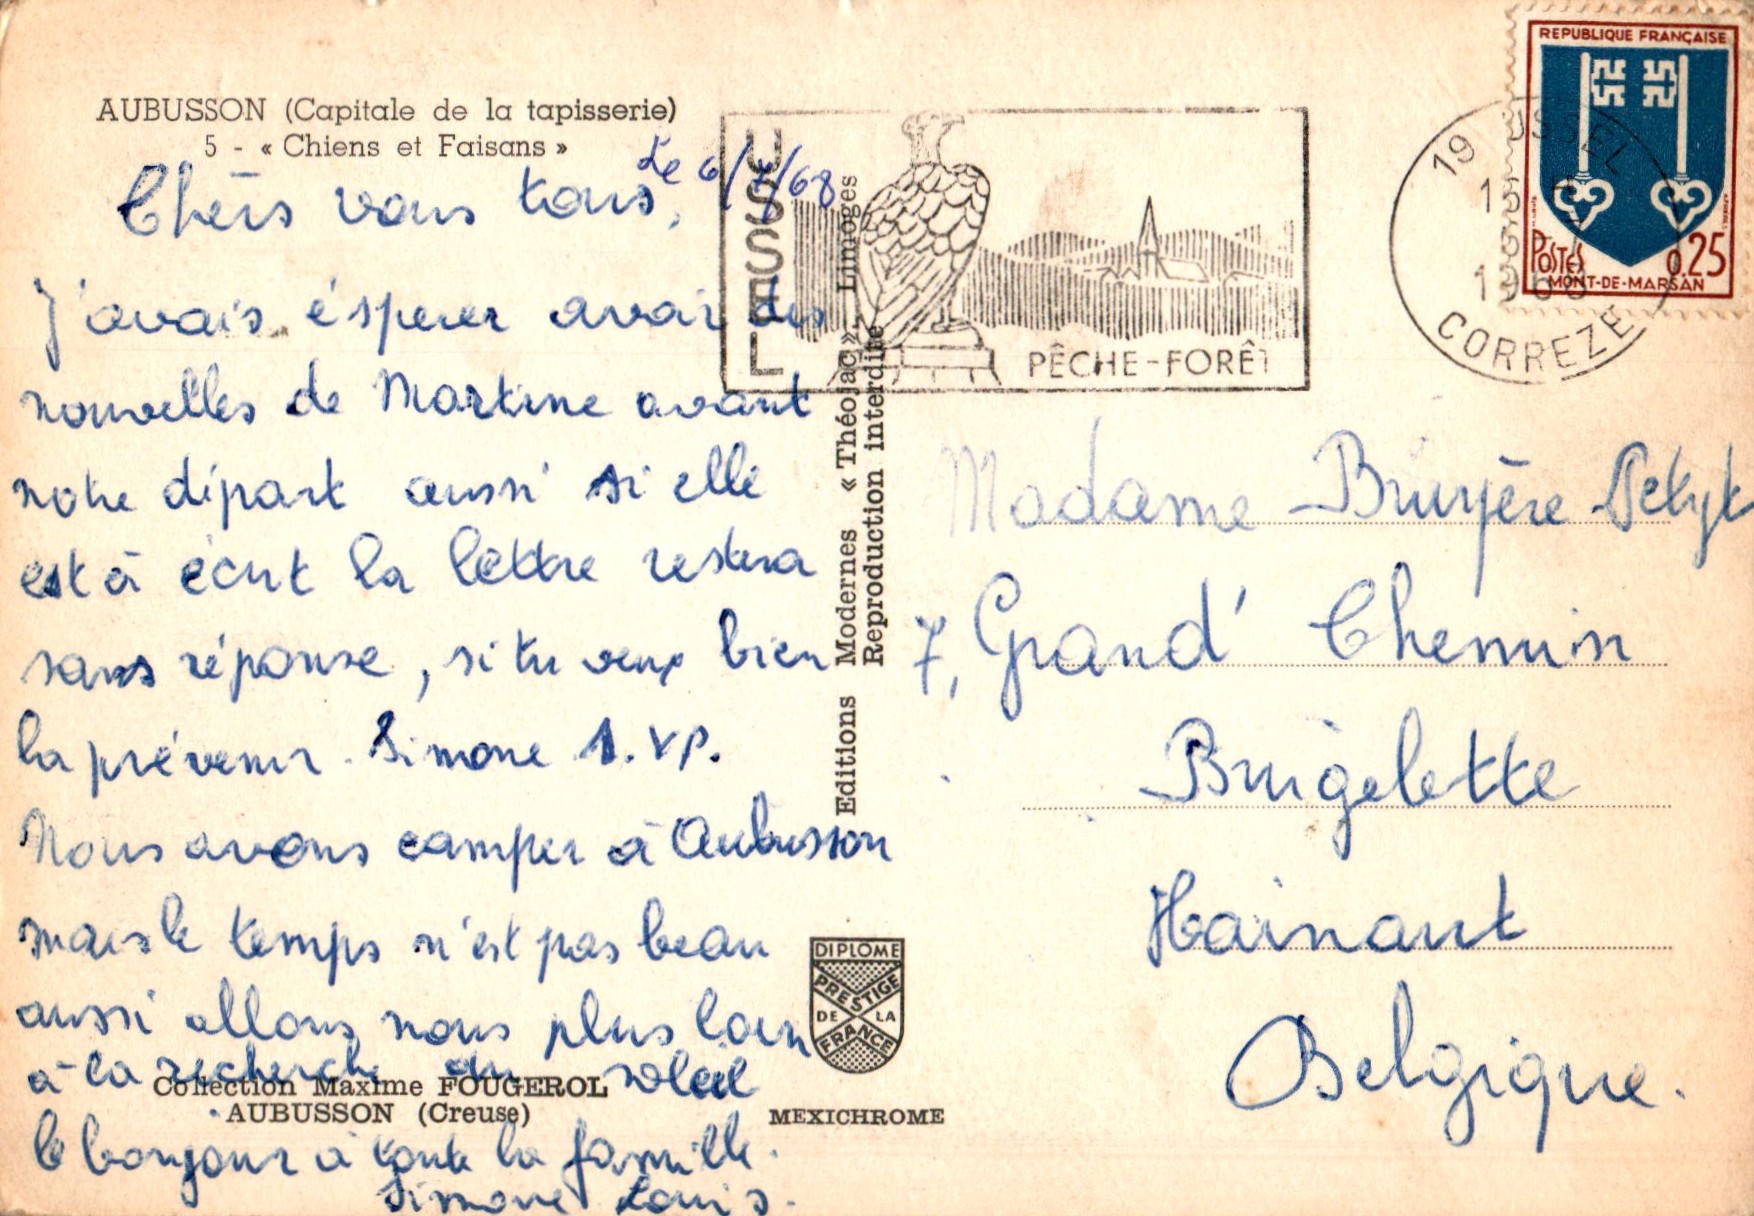 AUBUSSON (Capitale de la tapisserie)
5 - « Chiens et Faisans »
Le 6/7/68
Chèrs vous tous,
J'avais ésperer avoir des
nouvelles de Martine avant
notre départ aussi si elle
est à écrit la lettre restera
sans réponse, si tu veux bien
la prévenir. Simone S.V.P.
Nous avons camper à Aubusson
mais le temps n'est pas beau
aussi allons nous plus loin
à la recherche du soleil
le bonjour à toute la famille.
Simone Louis.
Collection Maxime FOUGEROL
AUBUSSON (Creuse)
MEXICHROME
Editions Modernes « Théojac », Limoges
Reproduction interdite
DIPLOME
PRESTIGE
DE LA
FRANCE
USSEL
PÊCHE-FORÊT
19 USSEL
CORREZE
REPUBLIQUE FRANÇAISE
POSTES
0,25
MONT-DE-MARSAN
Madame Bruyère
7, Grand' Chemin
Brugelette
Hainaut
Belgique.